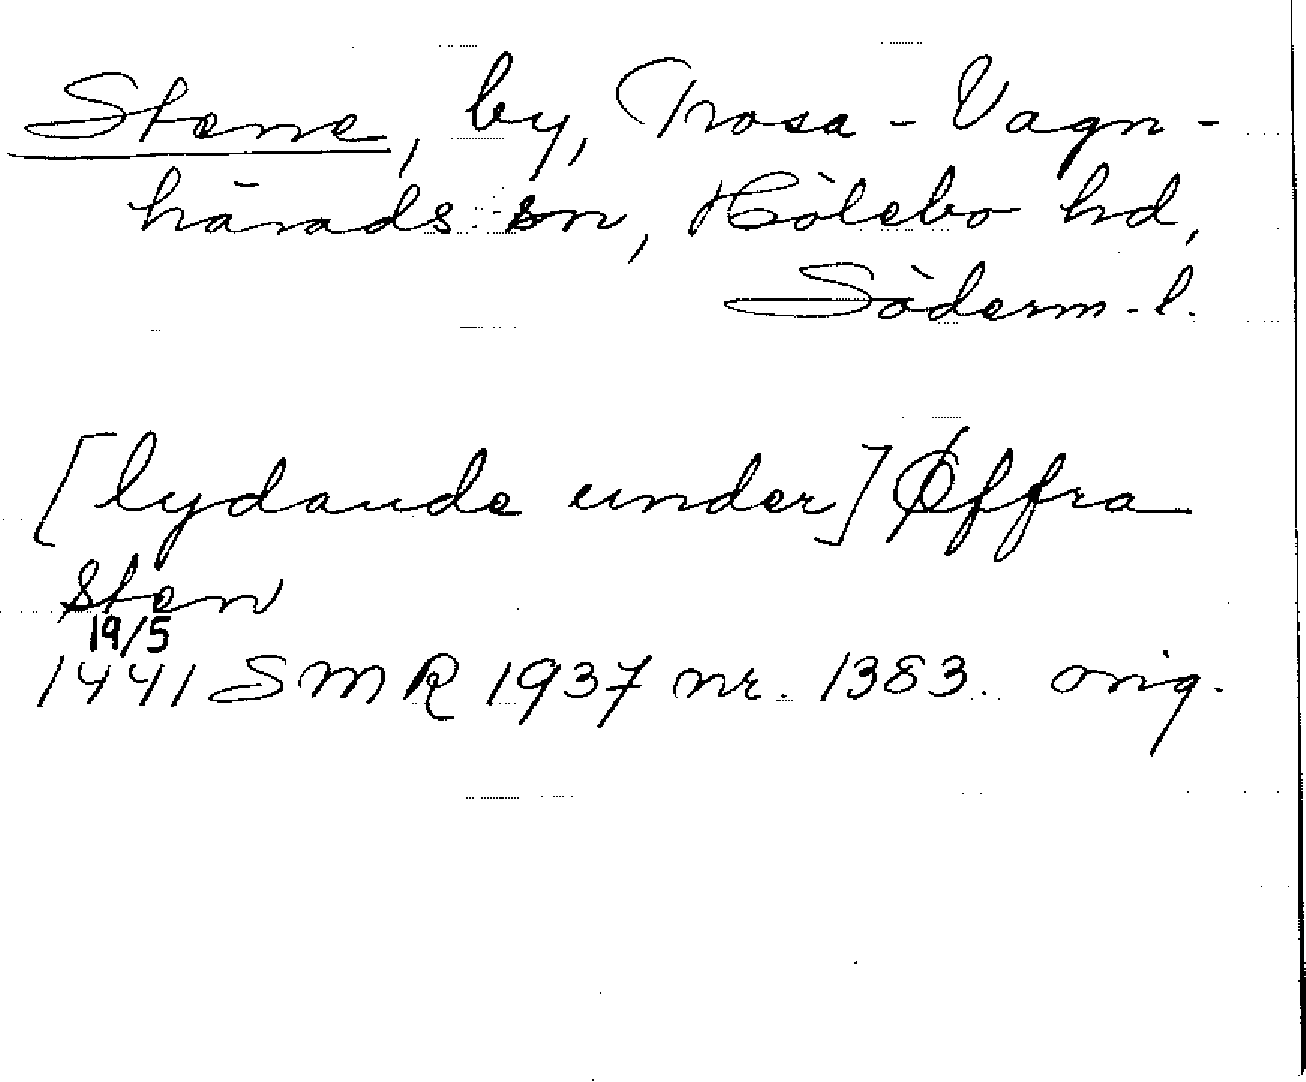 Stene, by, Trosa-Vagn-
härads sn, Hölebo hd,
Söderm.l.
[lydande under] Øffra
Sten
19/5
1441 SMR 1937 nr. 1383. orig.